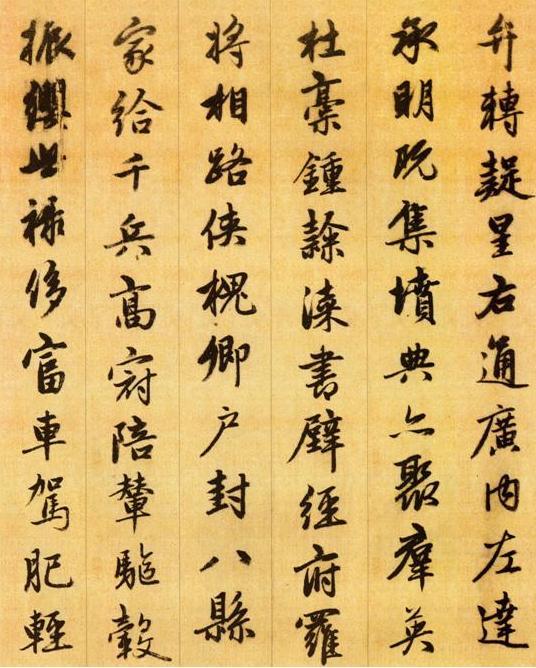 弁轉疑星右通廣內左達
承明既集墳典亦聚羣英
杜稾鍾隸漆書壁經府羅
將相路俠槐卿戶封八縣
家給千兵高冠陪輦驅轂
振纓世祿侈富車駕肥輕